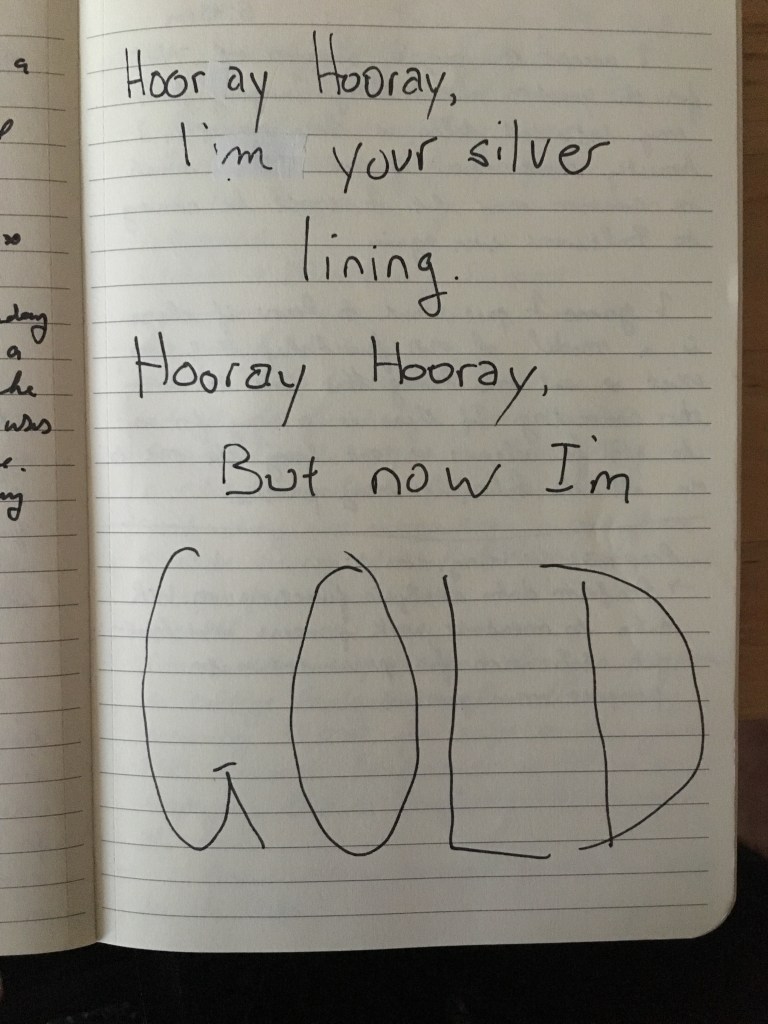 a
day
a
he
was
Hooray Hooray,
I'm your silver
lining.
Hooray Hooray,
But now I'm
GOLD